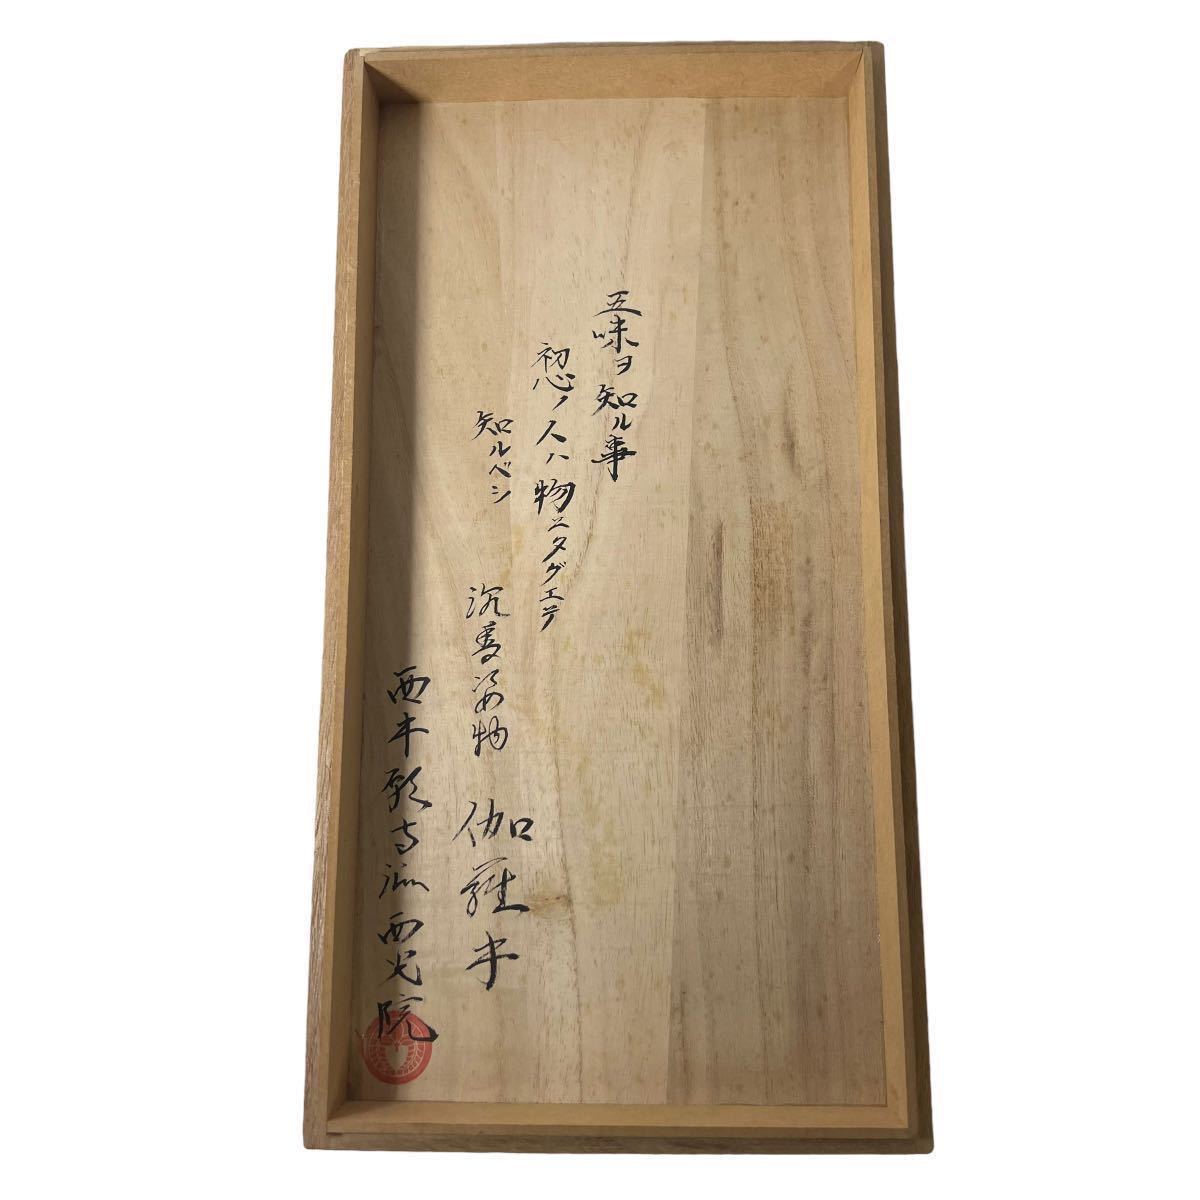 五味ヲ知ル事
初心ノ人ハ物ニタグエテ
知ルベシ
沉香姿物 伽羅木
西本願寺派西光院